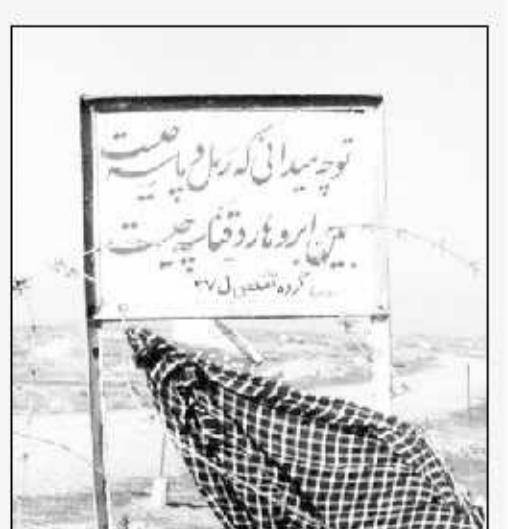 تو چه میدانی که رمل و ماسه چیست
بین ابروها رد قناسه چیست
گروه تفحص ل ۲۷